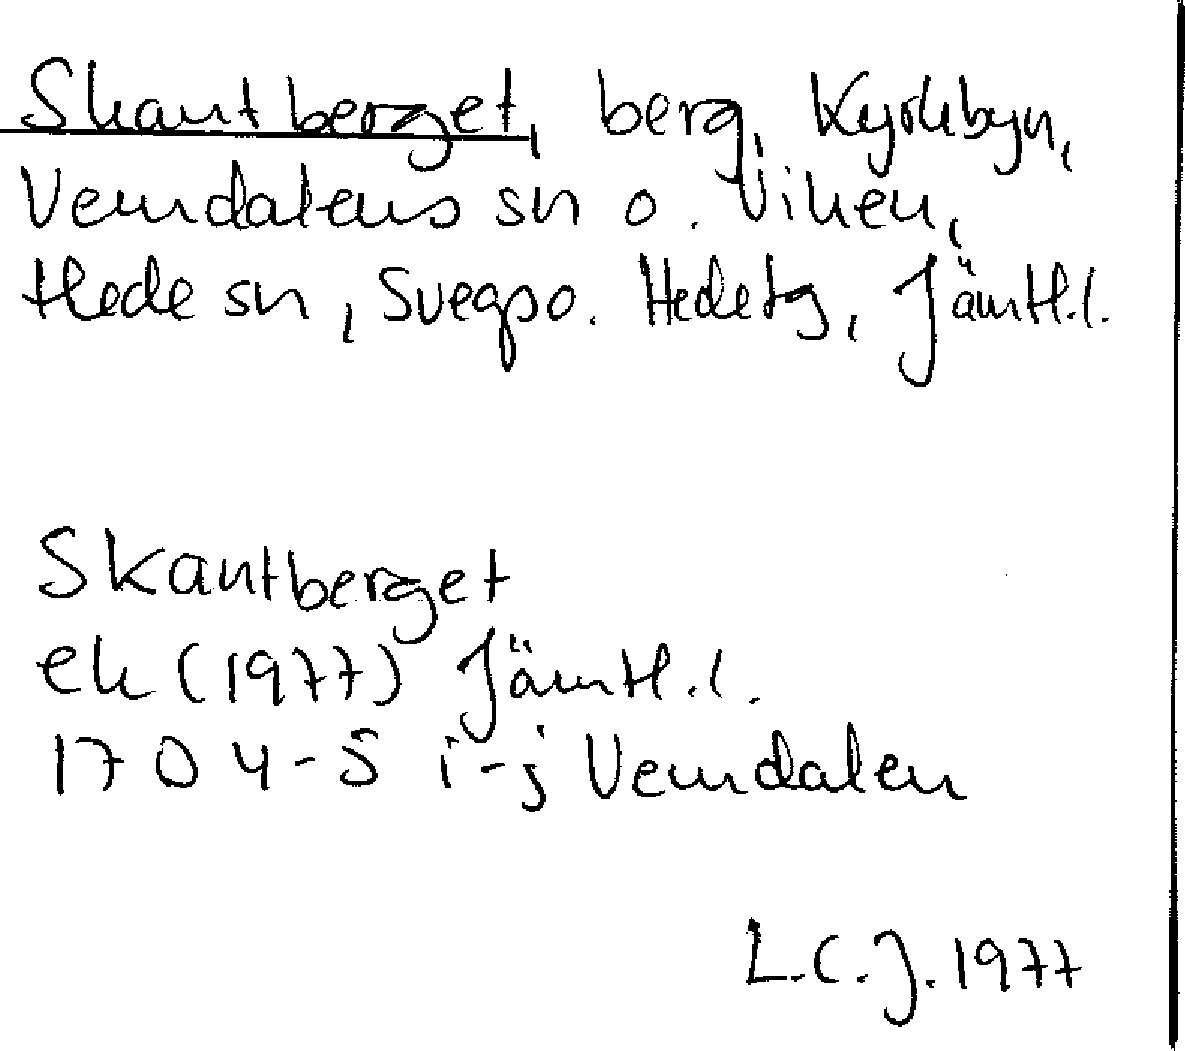 Skantberget, berg, Kyrkbyn,
Vemdalens sn o. Viken,
Hede sn, Svegs o. Hede tg, Jämtl.l.
Skantberget
ek (1977) Jämtl.l.
17D 4-5 i-j Vemdalen
L.C.J. 1977